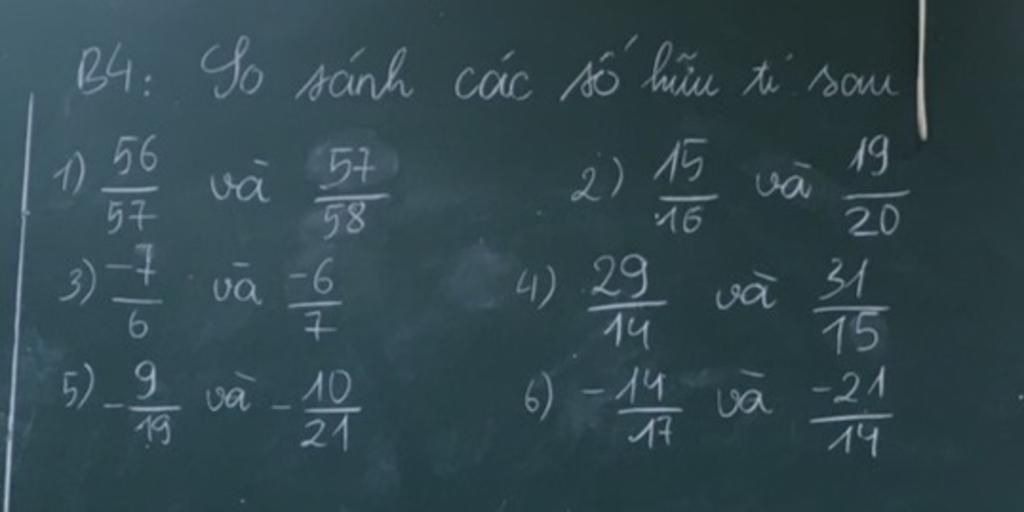 B4: So sánh các số hữu tỉ sau
1) 56/57 và 57/58 2) 15/16 và 19/20
3) -7/6 và -6/7 4) 29/14 và 31/15
5) -9/19 và -10/21 6) -14/17 và -21/14